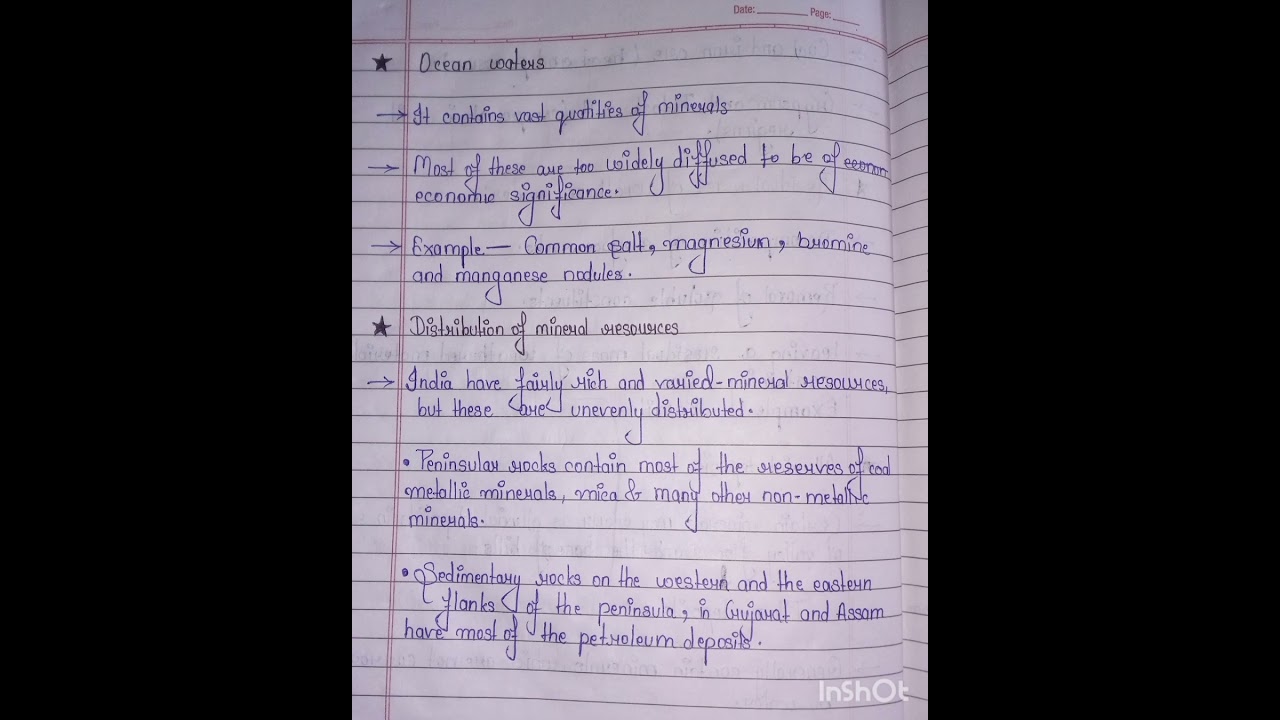 Date: ________ Page: ____
★ Ocean waters
→ It contains vast quatities of minerals
→ Most of these are too widely diffused to be of econom
economic significance.
→ Example — Common salt, magnesium, bromine
and manganese nodules.
★ Distribution of mineral resources
→ India have fairly rich and varied-mineral resources,
but these are unevenly distributed.
• Peninsular rocks contain most of the reserves of coal
metallic minerals, mica & many other non-metallic
minerals.
• Sedimentary rocks on the western and the eastern
flanks of the peninsula, in Gujarat and Assam
have most of the petroleum deposits.
InShOt